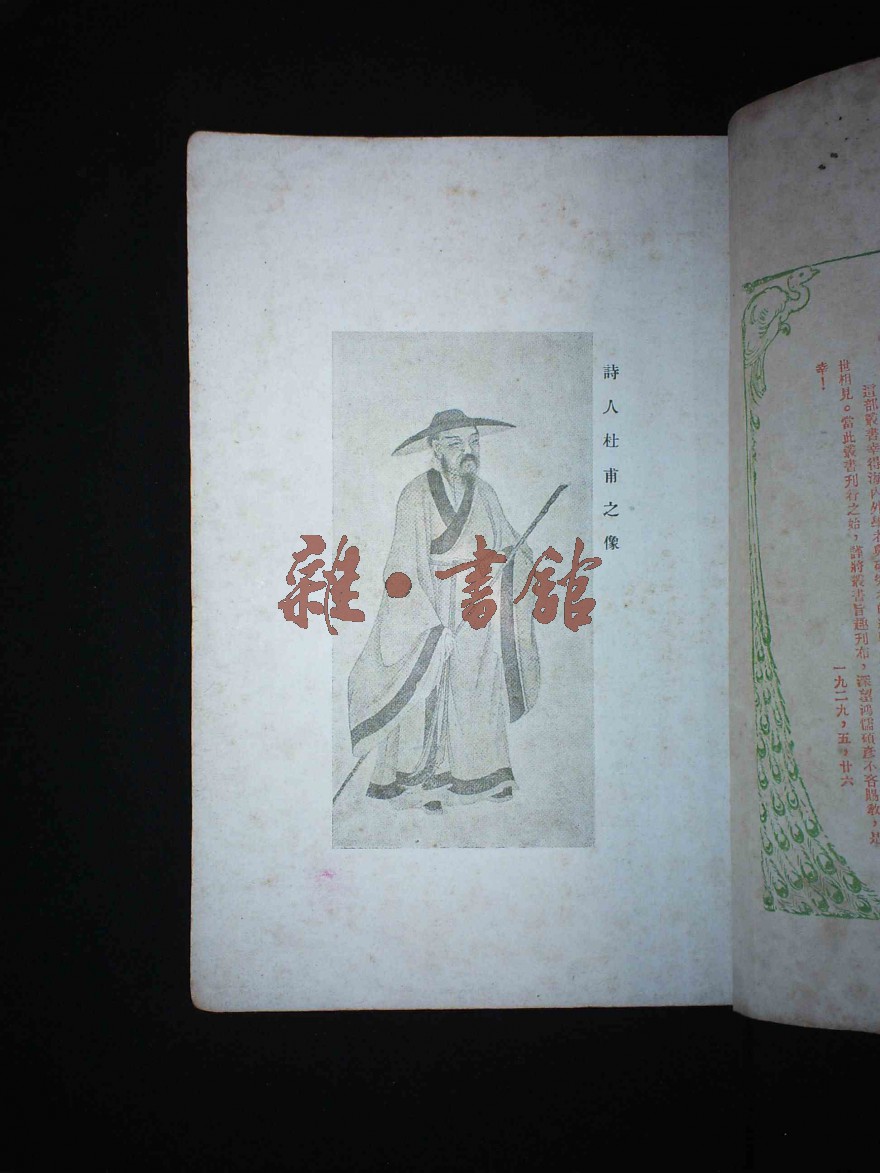 詩人杜甫之像
雜·書館
這部叢書幸得海內外學者
世相見。當此叢書刊行之始，謹將叢書旨趣刊布，深望鴻儒碩彥不吝賜教，是
幸！
一九二九，五，廿六